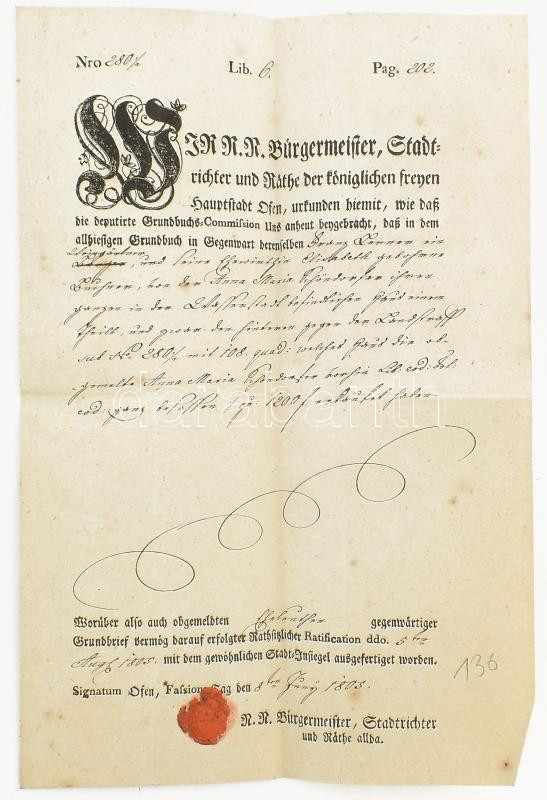 Nro 280½ Lib. 6. Pag. 202.
WIR N. N. Bürgermeister, Stadt=
richter und Räthe der königlichen freyen
Hauptstadt Ofen, urkunden hiemit, wie daß
die deputirte Grundbuchs-Commission Uns anheut beygebracht, daß in dem
allhiesigen Grundbuch in Gegenwart derenselben Franz ein
und seine Ehewirthin Elisabeth gebohrne
von der Anna Maria Schöndorfer ihren
ganzen in der Wasserstadt befindlichen Haus einen
Theill, und zwar den hinteren gegen der Landstraß
sub No 280½ mit 108. quad: welches Haus die ob-
gemelte Anna Maria Schöndorfer vorhin Lib. cod: fol:
cod: ganz besessen, pr: 1200 f erkaufet haben
darabanth
Worüber also auch obgemeldten Eheleuthen gegenwärtiger
Grundbrief vermög darauf erfolgter Rathsitzlicher Ratification ddo. 5ten
Aug 1805. mit dem gewöhnlichen Stadt-Insiegel ausgefertiget worden.
Signatum Ofen, Fassions-Tag den 8ten Juny 1805.
136
N. N. Bürgermeister, Stadtrichter
und Räthe allda.